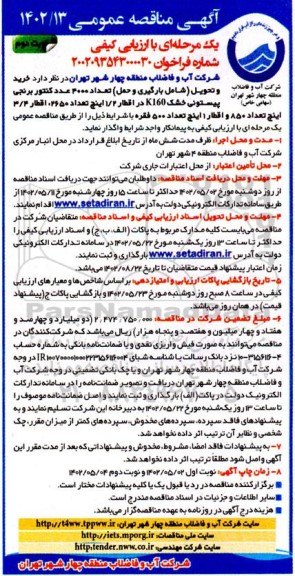 آگهی مناقصه عمومی ۱۴۰۲/۱۳
نوبت دوم
یک مرحله‌ای با ارزیابی کیفی
شماره فراخوان ۲۰۰۲۰۹۳۵۴۳۰۰۰۰۳۰
شرکت آب و فاضلاب
منطقه چهار شهر تهران
(سهامی خاص)
شرکت آب و فاضلاب منطقه چهار شهر تهران در نظر دارد خرید
و تحویل (شامل بارگیری و حمل) تعداد ۴۰۰۰ عدد کنتور برنجی
پیستونی خشک K160 در اقطار ۱/۲ اینچ تعداد ۲۶۵۰، اقطار ۳/۴
اینچ تعداد ۸۵۰ و اقطار ۱ اینچ تعداد ۵۰۰ فقره با شرایط ذیل را از طریق مناقصه عمومی
یک مرحله ای با ارزیابی کیفی به پیمانکار واجد شرایط واگذار نماید.
۱- مدت و محل اجرا: ظرف مدت شش ماه از تاریخ ابلاغ قرارداد در محل انبار مرکزی
شرکت آب و فاضلاب منطقه ۴ شهر تهران
۲- محل تأمین اعتبار: از محل اعتبارات جاری شرکت
۳- مهلت و محل دریافت اسناد مناقصه: داوطلبان می‌توانند جهت دریافت اسناد مناقصه
از روز دوشنبه مورخ ۱۴۰۲/۰۵/۰۲ حداکثر تا ساعت ۱۵ روز چهارشنبه مورخ ۱۴۰۲/۰۵/۱۱ از
طریق سامانه تدارکات الکترونیکی دولت به آدرس www.setadiran.ir اقدام نمایند.
۴- مهلت و محل تحویل اسناد ارزیابی کیفی و اسناد مناقصه: متقاضیان شرکت در
مناقصه می‌بایست کلیه مدارک مربوط به پاکات (الف، ب، ج) و اسناد ارزیابی کیفی را
حداکثر تا ساعت ۱۳ روز یکشنبه مورخ ۱۴۰۲/۰۵/۲۲ در سامانه تدارکات الکترونیکی
دولت به آدرس www.setadiran.ir بارگذاری و ثبت نمایند.
زمان اعتبار پیشنهاد قیمت متقاضیان تا تاریخ ۱۴۰۲/۰۸/۲۲ می‌باشد.
۵- تاریخ بازگشایی پاکات ارزیابی و امتیازدهی: براساس شاخص‌ها و معیارهای ارزیابی
کیفی در ساعت ۸ صبح روز دوشنبه مورخ ۱۴۰۲/۰۵/۲۳ و بازگشایی پاکات ج (پیشنهاد
قیمت) در همان روز می‌باشد.
۶- مبلغ تضمین شرکت در مناقصه: ۲،۴۷۴،۷۵۰،۰۰۰ (دو میلیارد و چهارصد و
هفتاد و چهار میلیون و هفتصد و پنجاه هزار) ریال می‌باشد که شرکت‌کنندگان در
مناقصه می‌توانند به صورت فیش واریزی نقدی و یا ضمانت‌نامه بانکی به شماره حساب
شرکت آب و فاضلاب منطقه چهار شهر تهران و یا چک بانکی تضمینی در وجه شرکت آب
و فاضلاب منطقه چهار شهر تهران دریافت و تصویر ضمانت‌نامه را در سامانه تدارکات
الکترونیک دولت در پاکت (الف) بارگذاری و ثبت نمایند و اصل ضمانت‌نامه موصوف را
تا ساعت ۱۳ روز یکشنبه مورخ ۱۴۰۲/۰۵/۲۲ به دبیرخانه این شرکت تسلیم نمایند و به
پیشنهادهای فاقد سپرده، سپرده‌های مخدوش، سپرده‌های کمتر از میزان مقرر، چک
شخصی و نظایر آن ترتیب اثر داده نخواهد شد.
۷- به پیشنهادات فاقد امضا، مشروط، مخدوش و پیشنهاداتی که بعد از مدت مقرر این
آگهی واصل شود مطلقا ترتیب اثر داده نخواهد شد.
۸- زمان چاپ آگهی: نوبت اول ۱۴۰۲/۰۵/۰۲ و نوبت دوم ۱۴۰۲/۰۵/۰۴
برگزارکننده مناقصه در رد یا قبول یک یا کلیه پیشنهادات مختار است.
سایر اطلاعات و جزئیات در اسناد مناقصه مندرج است.
هزینه درج آگهی در روزنامه به عهده مناقصه‌گزار می‌باشد.
سایت شرکت آب و فاضلاب منطقه چهار شهر تهران: http://t4ww.tpww.ir
سایت ملی مناقصات: http://iets.mporg.ir
سایت شرکت مهندسی: http:tender.nww.co.ir
شرکت آب و فاضلاب منطقه چهار شهر تهران